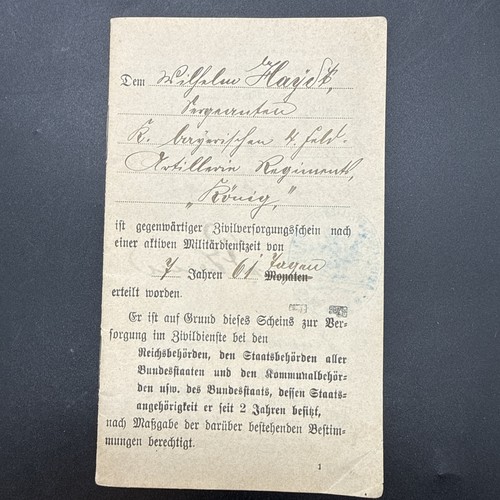 Dem Wilhelm Haydt,
Sergeanten
K. bayerischen 4. Feld-
Artillerie Regiments,
„König,"
ist gegenwärtiger Zivilversorgungsschein nach
einer aktiven Militärdienstzeit von
7 Jahren 61 Tagen Monaten
erteilt worden.
Er ist auf Grund dieses Scheins zur Ver-
sorgung im Zivildienste bei den
Reichsbehörden, den Staatsbehörden aller
Bundesstaaten und den Kommunalbehör-
den usw. des Bundesstaats, dessen Staats-
angehörigkeit er seit 2 Jahren besitzt,
nach Maßgabe der darüber bestehenden Bestim-
mungen berechtigt.
1